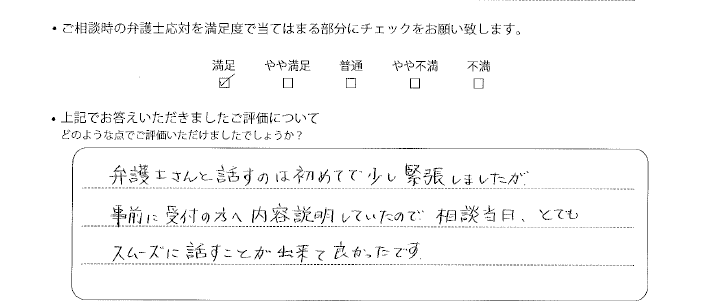 ・ご相談時の弁護士応対を満足度で当てはまる部分にチェックをお願い致します。
満足 やや満足 普通 やや不満 不満
☑ ☐ ☐ ☐ ☐
・上記でお答えいただきましたご評価について
どのような点でご評価いただけましたでしょうか？
弁護士さんと話すのは初めてで少し緊張しましたが
事前に受付の方へ内容説明していたので相談当日、とても
スムーズに話すことが出来て良かったです。